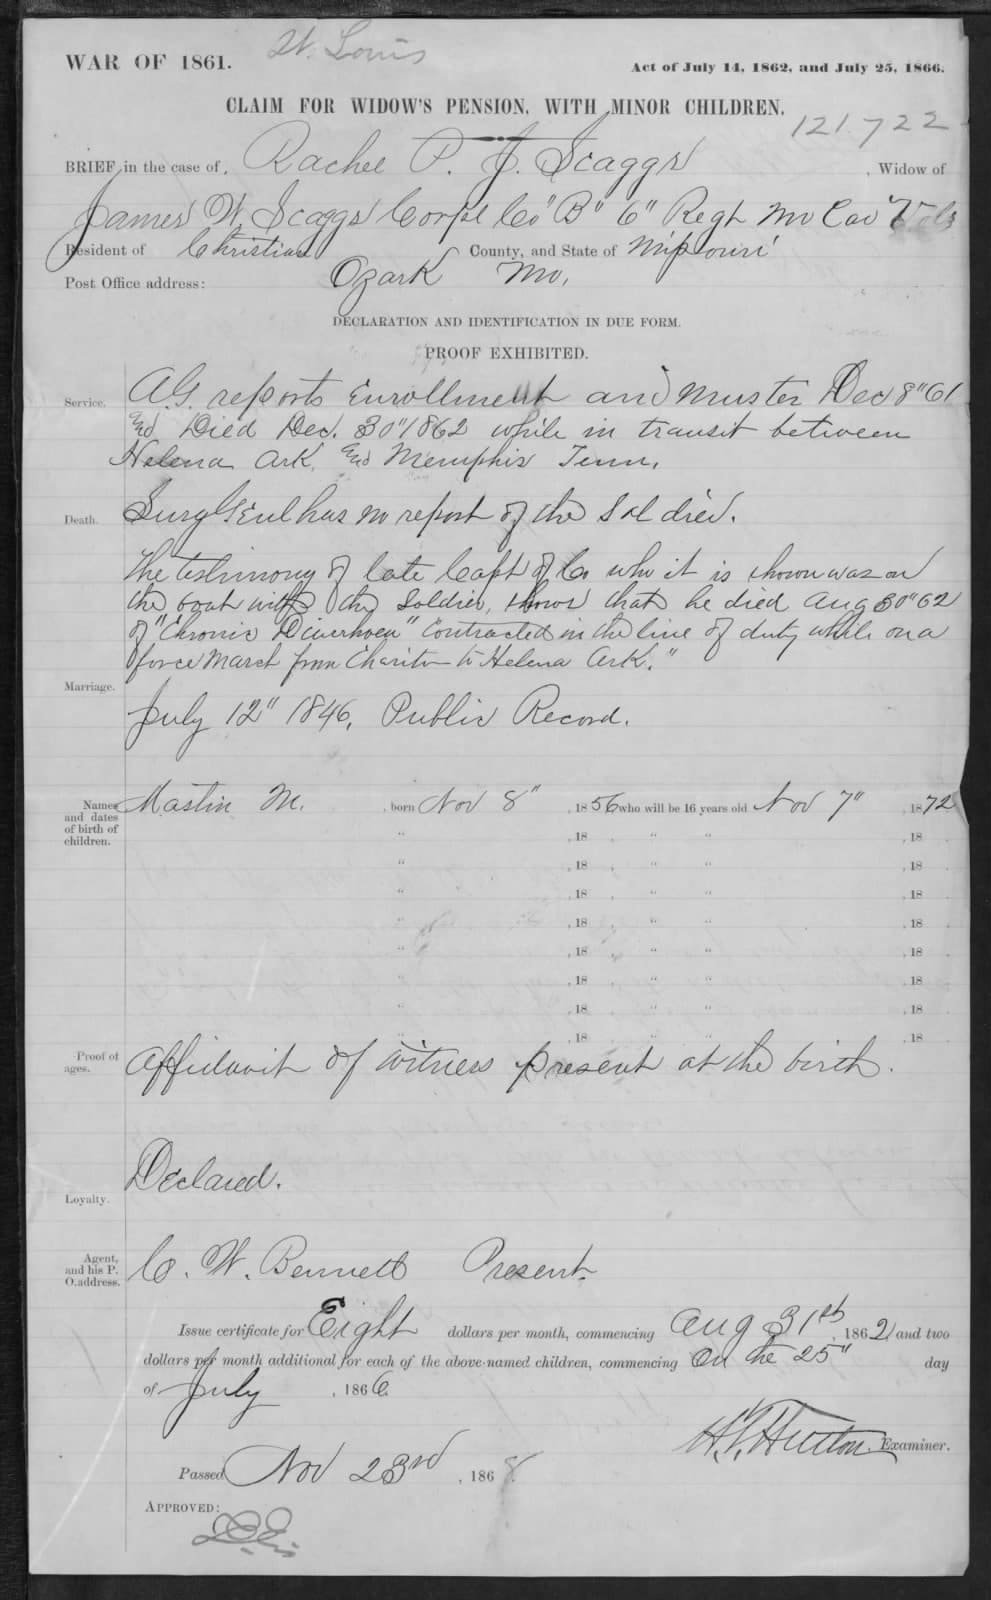 St. Louis
WAR OF 1861.
Act of July 14, 1862, and July 25, 1866.
CLAIM FOR WIDOW'S PENSION, WITH MINOR CHILDREN.
121722
BRIEF in the case of, Rachel P. J. Scaggs, Widow of
James W. Scaggs Corpl Co "B" 6" Regt Mo Cav Vols
Resident of Christian County, and State of Missouri
Post Office address: Ozark Mo.
DECLARATION AND IDENTIFICATION IN DUE FORM.
PROOF EXHIBITED.
Service. A.G. reports Enrollment and muster Dec 8" 61
and Died Dec. 30" 1862 while in transit between
Helena Ark. and Memphis Tenn.
Death. Surg Genl has no report of the Soldier.
The testimony of late Capt of Co who it is shown was on
the boat with the Soldier, shows that he died Aug 30" 62
of "Chronic Diarrhoea" contracted in the line of duty while on a
force march from Chariton to Helena Ark."
Marriage.
July 12" 1846, Public Record.
Names and dates of birth of children. Mastin M. , born Nov 8" , 1856 who will be 16 years old Nov 7" , 1872
" , 18 , " " , 18
" , 18 , " " , 18
" , 18 , " " , 18
" , 18 , " " , 18
" , 18 , " " , 18
" , 18 , " " , 18
" , 18 , " " , 18
" , 18 , " " , 18
Proof of ages. Affidavit of witness present at the birth.
Loyalty. Declared.
Agent, and his P. O. address. C. W. Bennett Present.
Issue certificate for Eight dollars per month, commencing Aug 31st, 1862 and two
dollars per month additional for each of the above-named children, commencing on the 25" day
of July , 1866
Examiner.
Passed Nov 23rd , 1868
APPROVED: